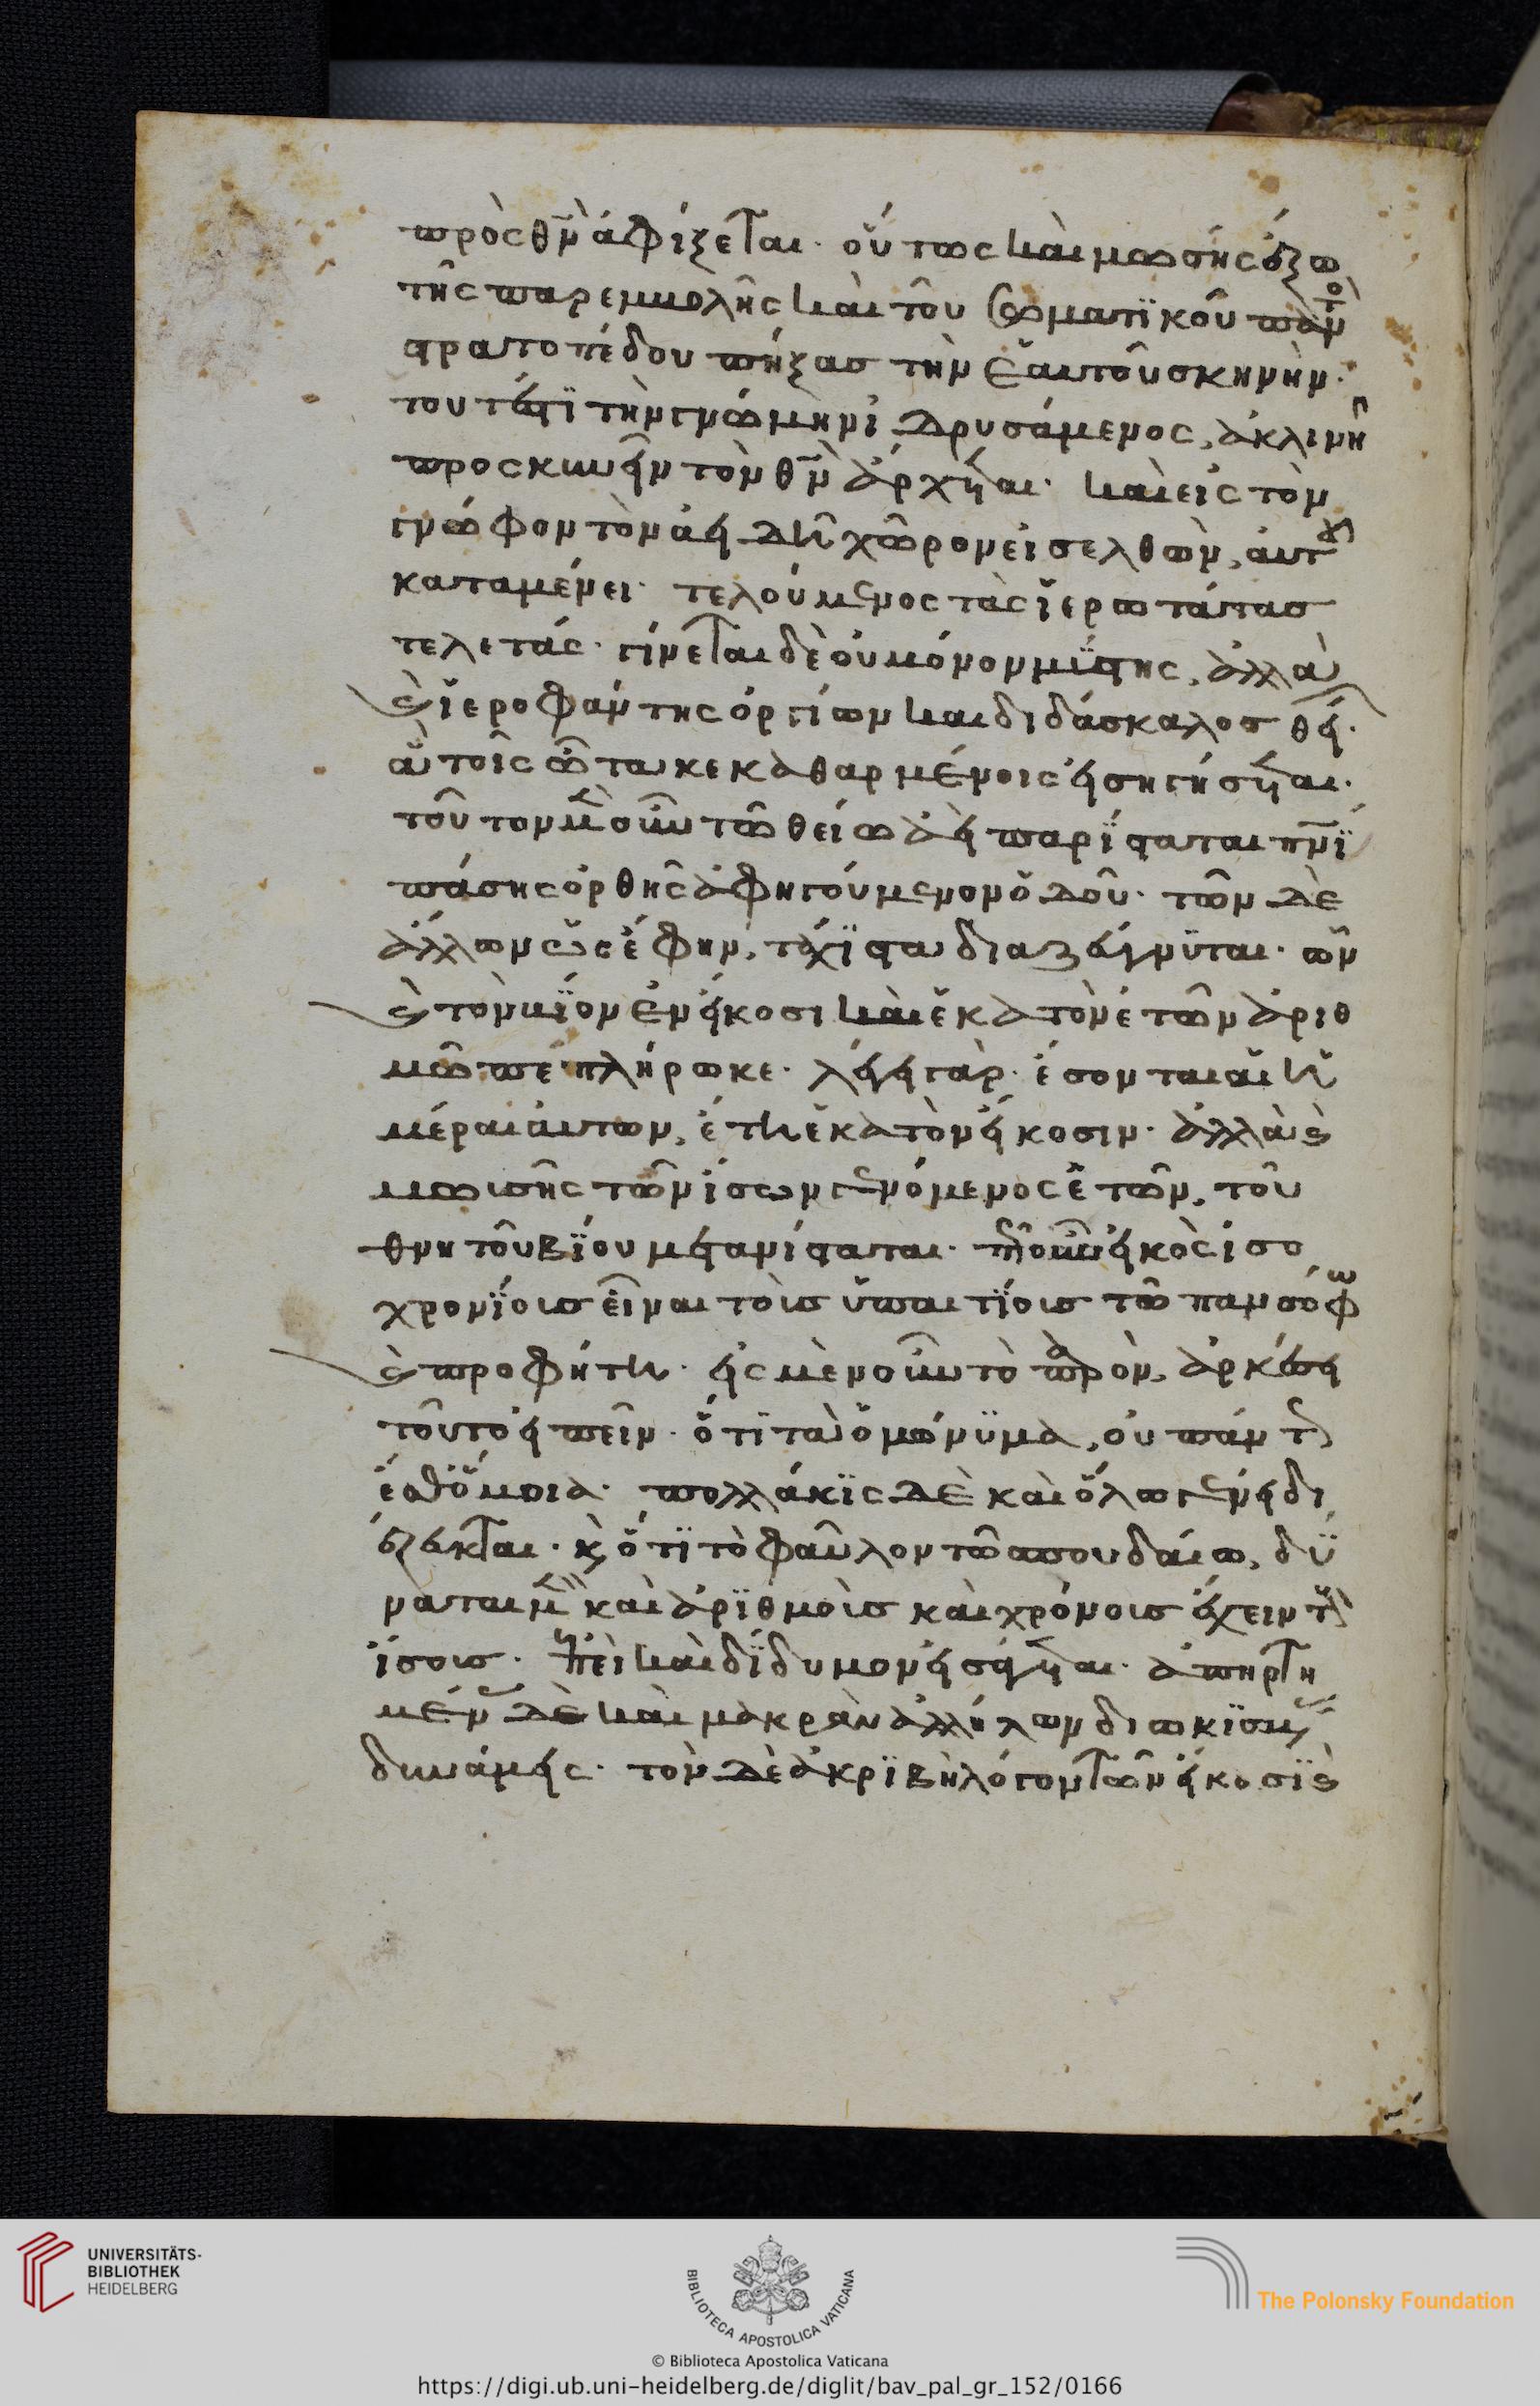 πρὸς θν̅ ἀφίξεται· οὕτως καὶ μωσῆς ἔξω
τῆς παρεμβολῆς καὶ τοῦ σωματϊκοῦ παντὸς
στρατοπέδου πήξας τὴν ἑαυτοῦ σκηνὴν·
τουτέστϊ τὴν γνώμην ἱδρυσάμενος, ἀκλινῆ
προσκυνεῖν τὸν θν̅ ἄρχεται· καὶ εἰς τὸν
γνόφον τὸν ἀειδῆ χῶρον εἰσελθὼν, αὐτοῦ
καταμένει· τελούμενος τὰς ἱερωτάτας
τελετάς· γίνεται δὲ οὐ μόνον μύστης, ἀλλὰ
καὶ ἱεροφάντης ὀργίων καὶ διδάσκαλος θεί·
ἃ τοῖς ὦτα κεκαθαρμένοις εἰσηγήσεται·
τούτω μὲν οὖν τὸ θεῖον ἀεὶ παρΐσταται πνϊ̅
πάσης ὀρθῆς ἀφηγούμενον ὁδοῦ· τῶν δὲ
ἄλλων ὡς ἔφην, τάχϊστα διαζεύγνϋται· ὧν
καὶ τὸν βΐον ἐν εἴκοσι καὶ ἑκατὸν ἐτῶν ἀριθ
μῶ πεπλήρωκε· λέγει γὰρ· ἔσονται αἱ ἡ
μέραι αὐτῶν, ἔτη ἑκατὸν εἴκοσιν· ἀλλὰ καὶ
μωισῆς τῶν ἴσων γενόμενος ἐτῶν, τοῦ
θνητοῦ βΐου μετανίσταται· πῶς οὖν εἰκὸς ἰσο
χρονΐους εἶναι τοὺς ὑπαιτΐους τῶ πανσόφω
καὶ προφήτη· εἰς μὲν οὖν τὸ παρὸν, ἀρκέσει
τοῦτο εἰπεῖν· ὅτϊ τὰ ὁμώνϋμα, οὐ πάντως
ἐστὶν ὅμοια· πολλάκϊς δὲ καὶ ὅλω γένει δι
έζευκται· καὶ ὅτϊ τὸ φαῦλον τῶ σπουδαίω, δϋ
ναται μὲν καὶ ἀρϊθμοὺς καὶ χρόνους ἔχειν τοὺς
ἴσους· ἐπεὶ καὶ δΐδυμον εἰσάγεται· ἀπηρτη
μένας δὲ καὶ μακρὰν ἀλλήλων διωκϊσμένας
δυνάμεις· τὸν δὲ ἀκρϊβῆ λόγον τῶν εἴκοσϊ καὶ
UNIVERSITÄTS-
BIBLIOTHEK
HEIDELBERG
BIBLIOTECA APOSTOLICA VATICANA
The Polonsky Foundation
© Biblioteca Apostolica Vaticana
https://digi.ub.uni-heidelberg.de/diglit/bav_pal_gr_152/0166